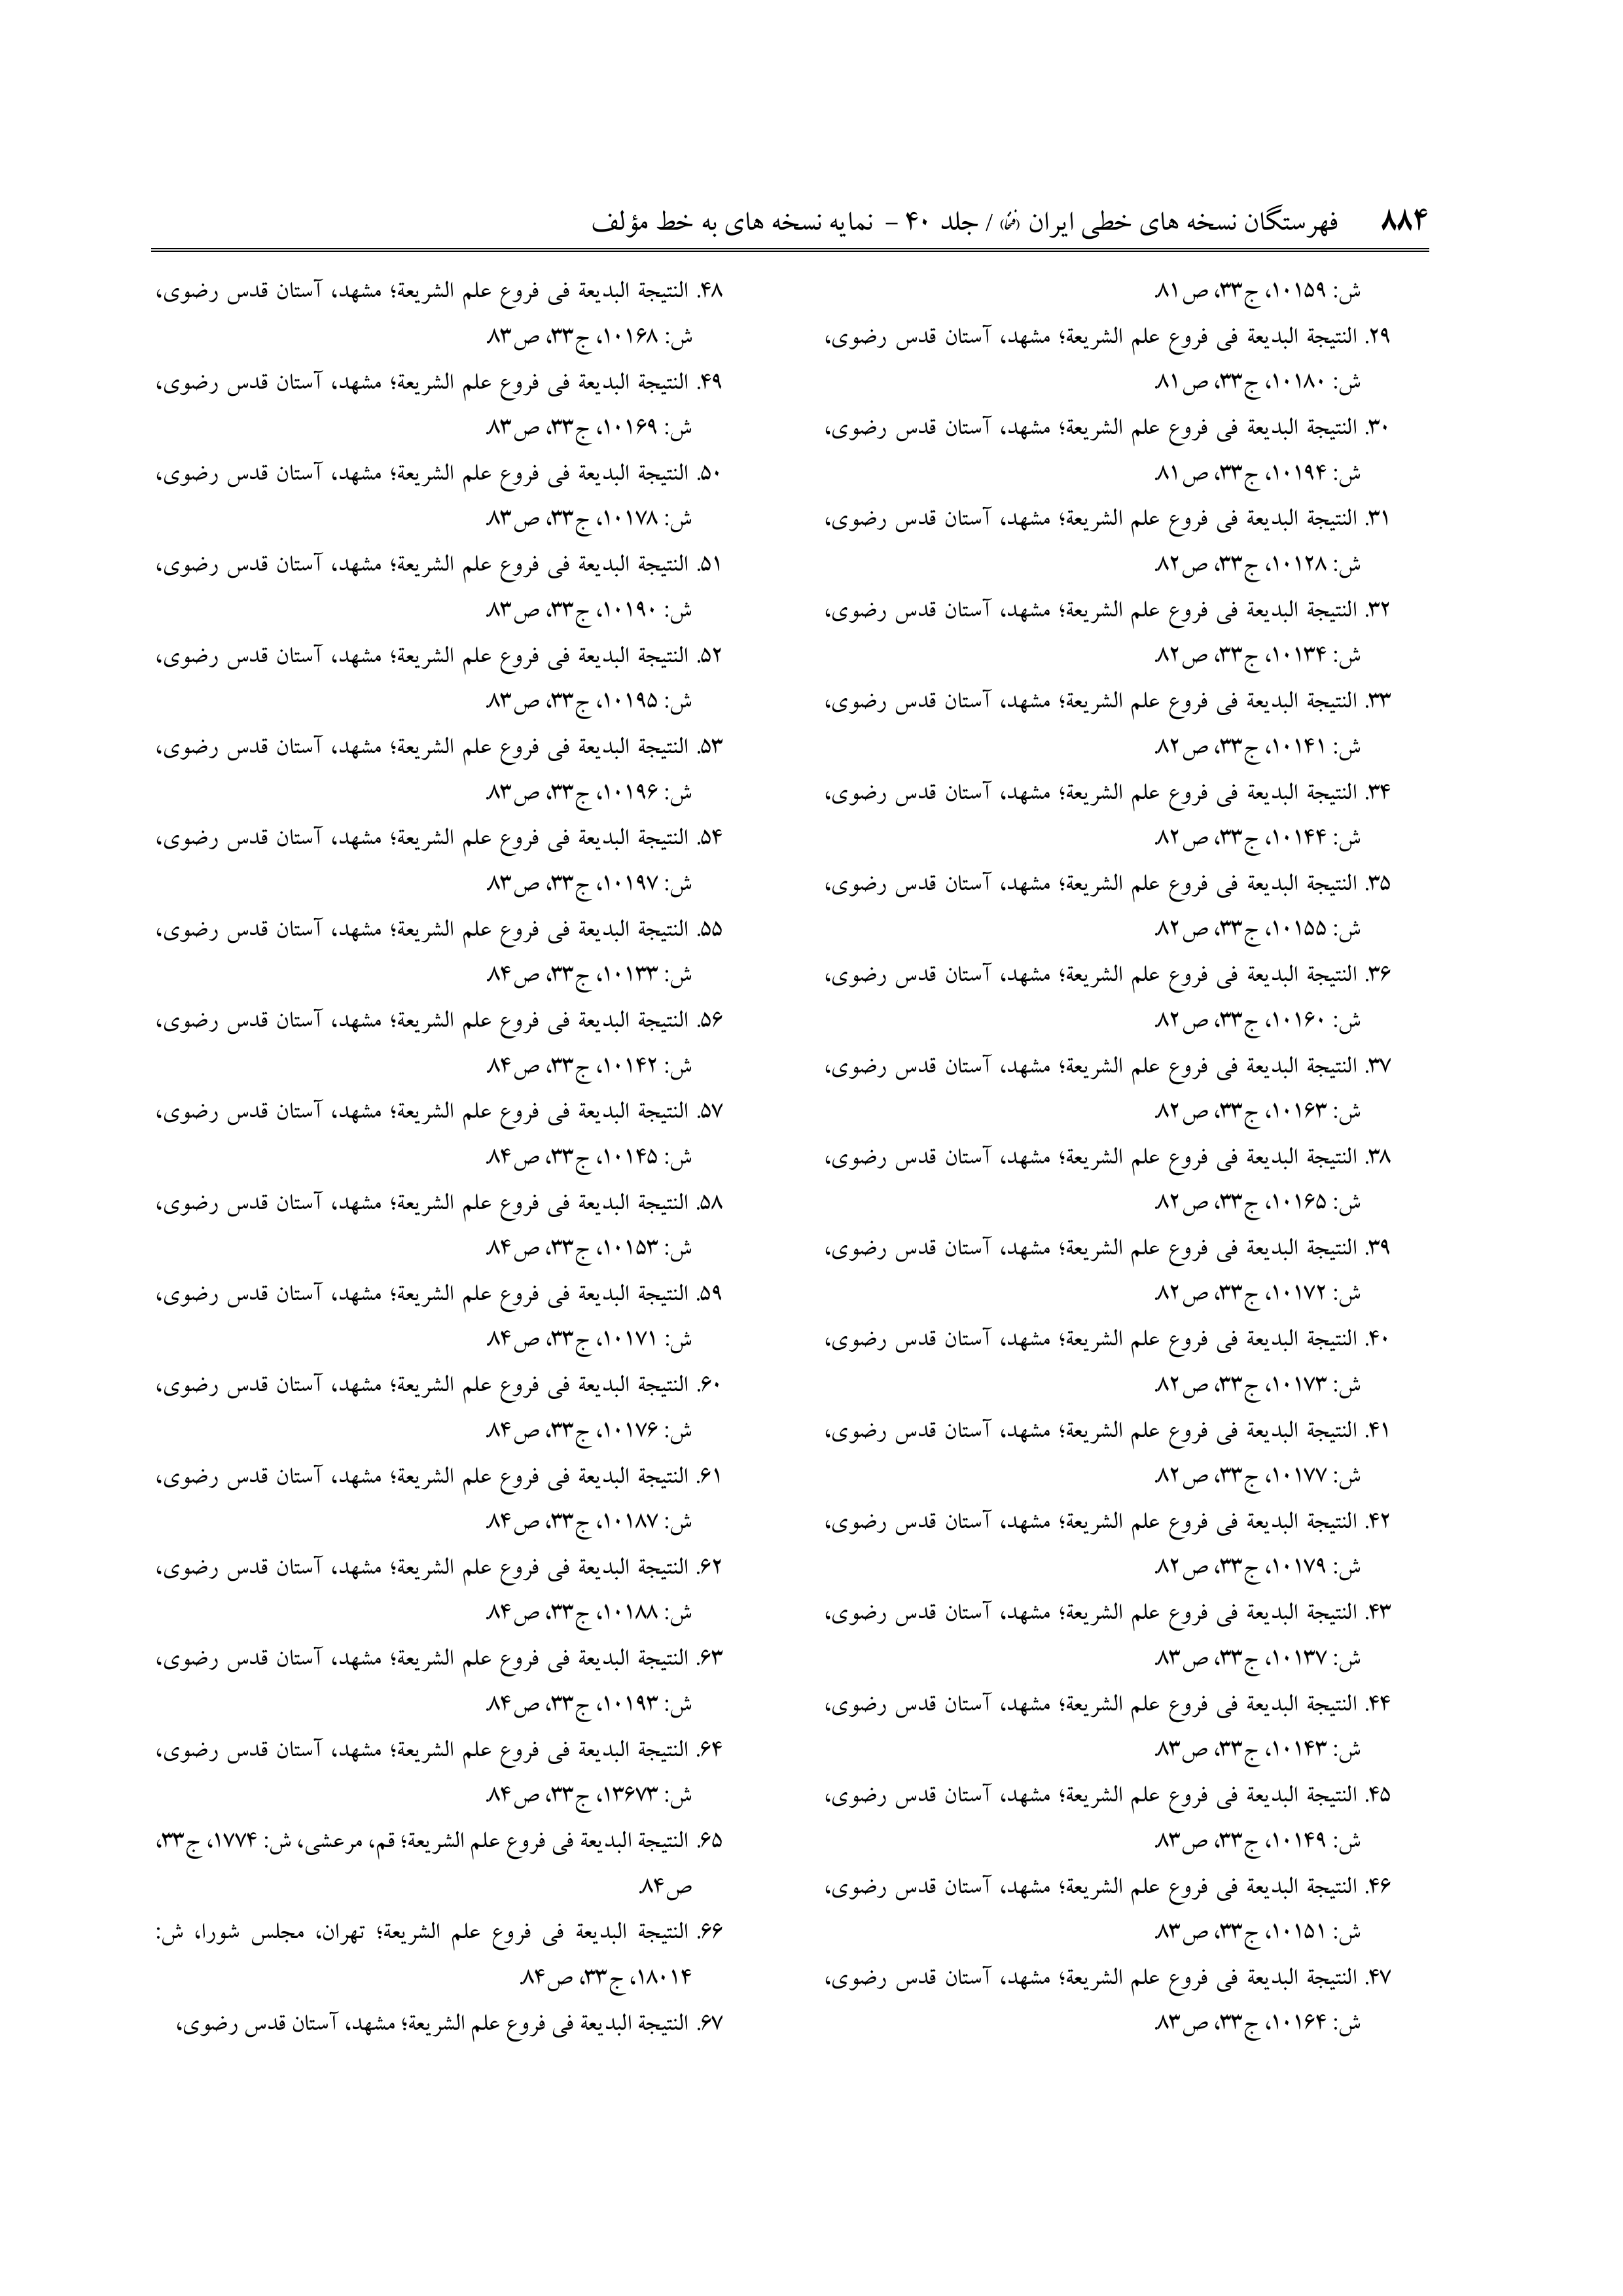 ۸۸۴ فهرستگان نسخه های خطی ایران (فنخا) / جلد ۴۰ - نمایه نسخه های به خط مؤلف
ش: ۱۰۱۵۹، ج۳۳، ص۸۱
۲۹. النتیجة البدیعة فی فروع علم الشریعة؛ مشهد، آستان قدس رضوی،
ش: ۱۰۱۸۰، ج۳۳، ص۸۱
۳۰. النتیجة البدیعة فی فروع علم الشریعة؛ مشهد، آستان قدس رضوی،
ش: ۱۰۱۹۴، ج۳۳، ص۸۱
۳۱. النتیجة البدیعة فی فروع علم الشریعة؛ مشهد، آستان قدس رضوی،
ش: ۱۰۱۲۸، ج۳۳، ص۸۲
۳۲. النتیجة البدیعة فی فروع علم الشریعة؛ مشهد، آستان قدس رضوی،
ش: ۱۰۱۳۴، ج۳۳، ص۸۲
۳۳. النتیجة البدیعة فی فروع علم الشریعة؛ مشهد، آستان قدس رضوی،
ش: ۱۰۱۴۱، ج۳۳، ص۸۲
۳۴. النتیجة البدیعة فی فروع علم الشریعة؛ مشهد، آستان قدس رضوی،
ش: ۱۰۱۴۴، ج۳۳، ص۸۲
۳۵. النتیجة البدیعة فی فروع علم الشریعة؛ مشهد، آستان قدس رضوی،
ش: ۱۰۱۵۵، ج۳۳، ص۸۲
۳۶. النتیجة البدیعة فی فروع علم الشریعة؛ مشهد، آستان قدس رضوی،
ش: ۱۰۱۶۰، ج۳۳، ص۸۲
۳۷. النتیجة البدیعة فی فروع علم الشریعة؛ مشهد، آستان قدس رضوی،
ش: ۱۰۱۶۳، ج۳۳، ص۸۲
۳۸. النتیجة البدیعة فی فروع علم الشریعة؛ مشهد، آستان قدس رضوی،
ش: ۱۰۱۶۵، ج۳۳، ص۸۲
۳۹. النتیجة البدیعة فی فروع علم الشریعة؛ مشهد، آستان قدس رضوی،
ش: ۱۰۱۷۲، ج۳۳، ص۸۲
۴۰. النتیجة البدیعة فی فروع علم الشریعة؛ مشهد، آستان قدس رضوی،
ش: ۱۰۱۷۳، ج۳۳، ص۸۲
۴۱. النتیجة البدیعة فی فروع علم الشریعة؛ مشهد، آستان قدس رضوی،
ش: ۱۰۱۷۷، ج۳۳، ص۸۲
۴۲. النتیجة البدیعة فی فروع علم الشریعة؛ مشهد، آستان قدس رضوی،
ش: ۱۰۱۷۹، ج۳۳، ص۸۲
۴۳. النتیجة البدیعة فی فروع علم الشریعة؛ مشهد، آستان قدس رضوی،
ش: ۱۰۱۳۷، ج۳۳، ص۸۳
۴۴. النتیجة البدیعة فی فروع علم الشریعة؛ مشهد، آستان قدس رضوی،
ش: ۱۰۱۴۳، ج۳۳، ص۸۳
۴۵. النتیجة البدیعة فی فروع علم الشریعة؛ مشهد، آستان قدس رضوی،
ش: ۱۰۱۴۹، ج۳۳، ص۸۳
۴۶. النتیجة البدیعة فی فروع علم الشریعة؛ مشهد، آستان قدس رضوی،
ش: ۱۰۱۵۱، ج۳۳، ص۸۳
۴۷. النتیجة البدیعة فی فروع علم الشریعة؛ مشهد، آستان قدس رضوی،
ش: ۱۰۱۶۴، ج۳۳، ص۸۳
۴۸. النتیجة البدیعة فی فروع علم الشریعة؛ مشهد، آستان قدس رضوی،
ش: ۱۰۱۶۸، ج۳۳، ص۸۳
۴۹. النتیجة البدیعة فی فروع علم الشریعة؛ مشهد، آستان قدس رضوی،
ش: ۱۰۱۶۹، ج۳۳، ص۸۳
۵۰. النتیجة البدیعة فی فروع علم الشریعة؛ مشهد، آستان قدس رضوی،
ش: ۱۰۱۷۸، ج۳۳، ص۸۳
۵۱. النتیجة البدیعة فی فروع علم الشریعة؛ مشهد، آستان قدس رضوی،
ش: ۱۰۱۹۰، ج۳۳، ص۸۳
۵۲. النتیجة البدیعة فی فروع علم الشریعة؛ مشهد، آستان قدس رضوی،
ش: ۱۰۱۹۵، ج۳۳، ص۸۳
۵۳. النتیجة البدیعة فی فروع علم الشریعة؛ مشهد، آستان قدس رضوی،
ش: ۱۰۱۹۶، ج۳۳، ص۸۳
۵۴. النتیجة البدیعة فی فروع علم الشریعة؛ مشهد، آستان قدس رضوی،
ش: ۱۰۱۹۷، ج۳۳، ص۸۳
۵۵. النتیجة البدیعة فی فروع علم الشریعة؛ مشهد، آستان قدس رضوی،
ش: ۱۰۱۳۳، ج۳۳، ص۸۴
۵۶. النتیجة البدیعة فی فروع علم الشریعة؛ مشهد، آستان قدس رضوی،
ش: ۱۰۱۴۲، ج۳۳، ص۸۴
۵۷. النتیجة البدیعة فی فروع علم الشریعة؛ مشهد، آستان قدس رضوی،
ش: ۱۰۱۴۵، ج۳۳، ص۸۴
۵۸. النتیجة البدیعة فی فروع علم الشریعة؛ مشهد، آستان قدس رضوی،
ش: ۱۰۱۵۳، ج۳۳، ص۸۴
۵۹. النتیجة البدیعة فی فروع علم الشریعة؛ مشهد، آستان قدس رضوی،
ش: ۱۰۱۷۱، ج۳۳، ص۸۴
۶۰. النتیجة البدیعة فی فروع علم الشریعة؛ مشهد، آستان قدس رضوی،
ش: ۱۰۱۷۶، ج۳۳، ص۸۴
۶۱. النتیجة البدیعة فی فروع علم الشریعة؛ مشهد، آستان قدس رضوی،
ش: ۱۰۱۸۷، ج۳۳، ص۸۴
۶۲. النتیجة البدیعة فی فروع علم الشریعة؛ مشهد، آستان قدس رضوی،
ش: ۱۰۱۸۸، ج۳۳، ص۸۴
۶۳. النتیجة البدیعة فی فروع علم الشریعة؛ مشهد، آستان قدس رضوی،
ش: ۱۰۱۹۳، ج۳۳، ص۸۴
۶۴. النتیجة البدیعة فی فروع علم الشریعة؛ مشهد، آستان قدس رضوی،
ش: ۱۳۶۷۳، ج۳۳، ص۸۴
۶۵. النتیجة البدیعة فی فروع علم الشریعة؛ قم، مرعشی، ش: ۱۷۷۴، ج۳۳،
ص۸۴
۶۶. النتیجة البدیعة فی فروع علم الشریعة؛ تهران، مجلس شورا، ش:
۱۸۰۱۴، ج۳۳، ص۸۴
۶۷. النتیجة البدیعة فی فروع علم الشریعة؛ مشهد، آستان قدس رضوی،